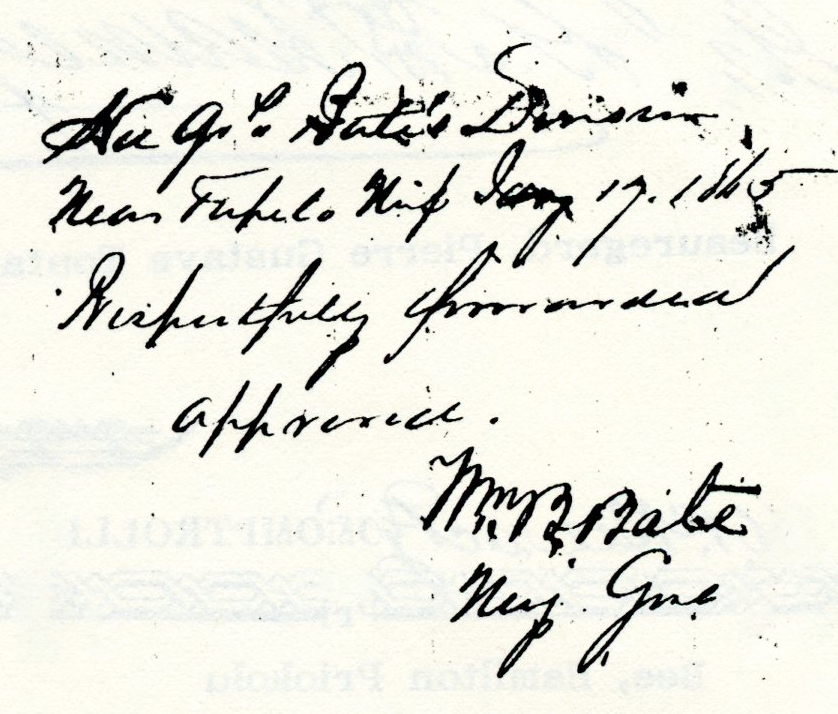 Hd Qrs Bate's Division
Near Tupelo Miss Jany 17. 1865
Respectfully forwarded
approved.
Wm. B. Bate
Maj. Genl
Beauregard, Pierre Gustave
COMPTROLL
Bee, Hamilton